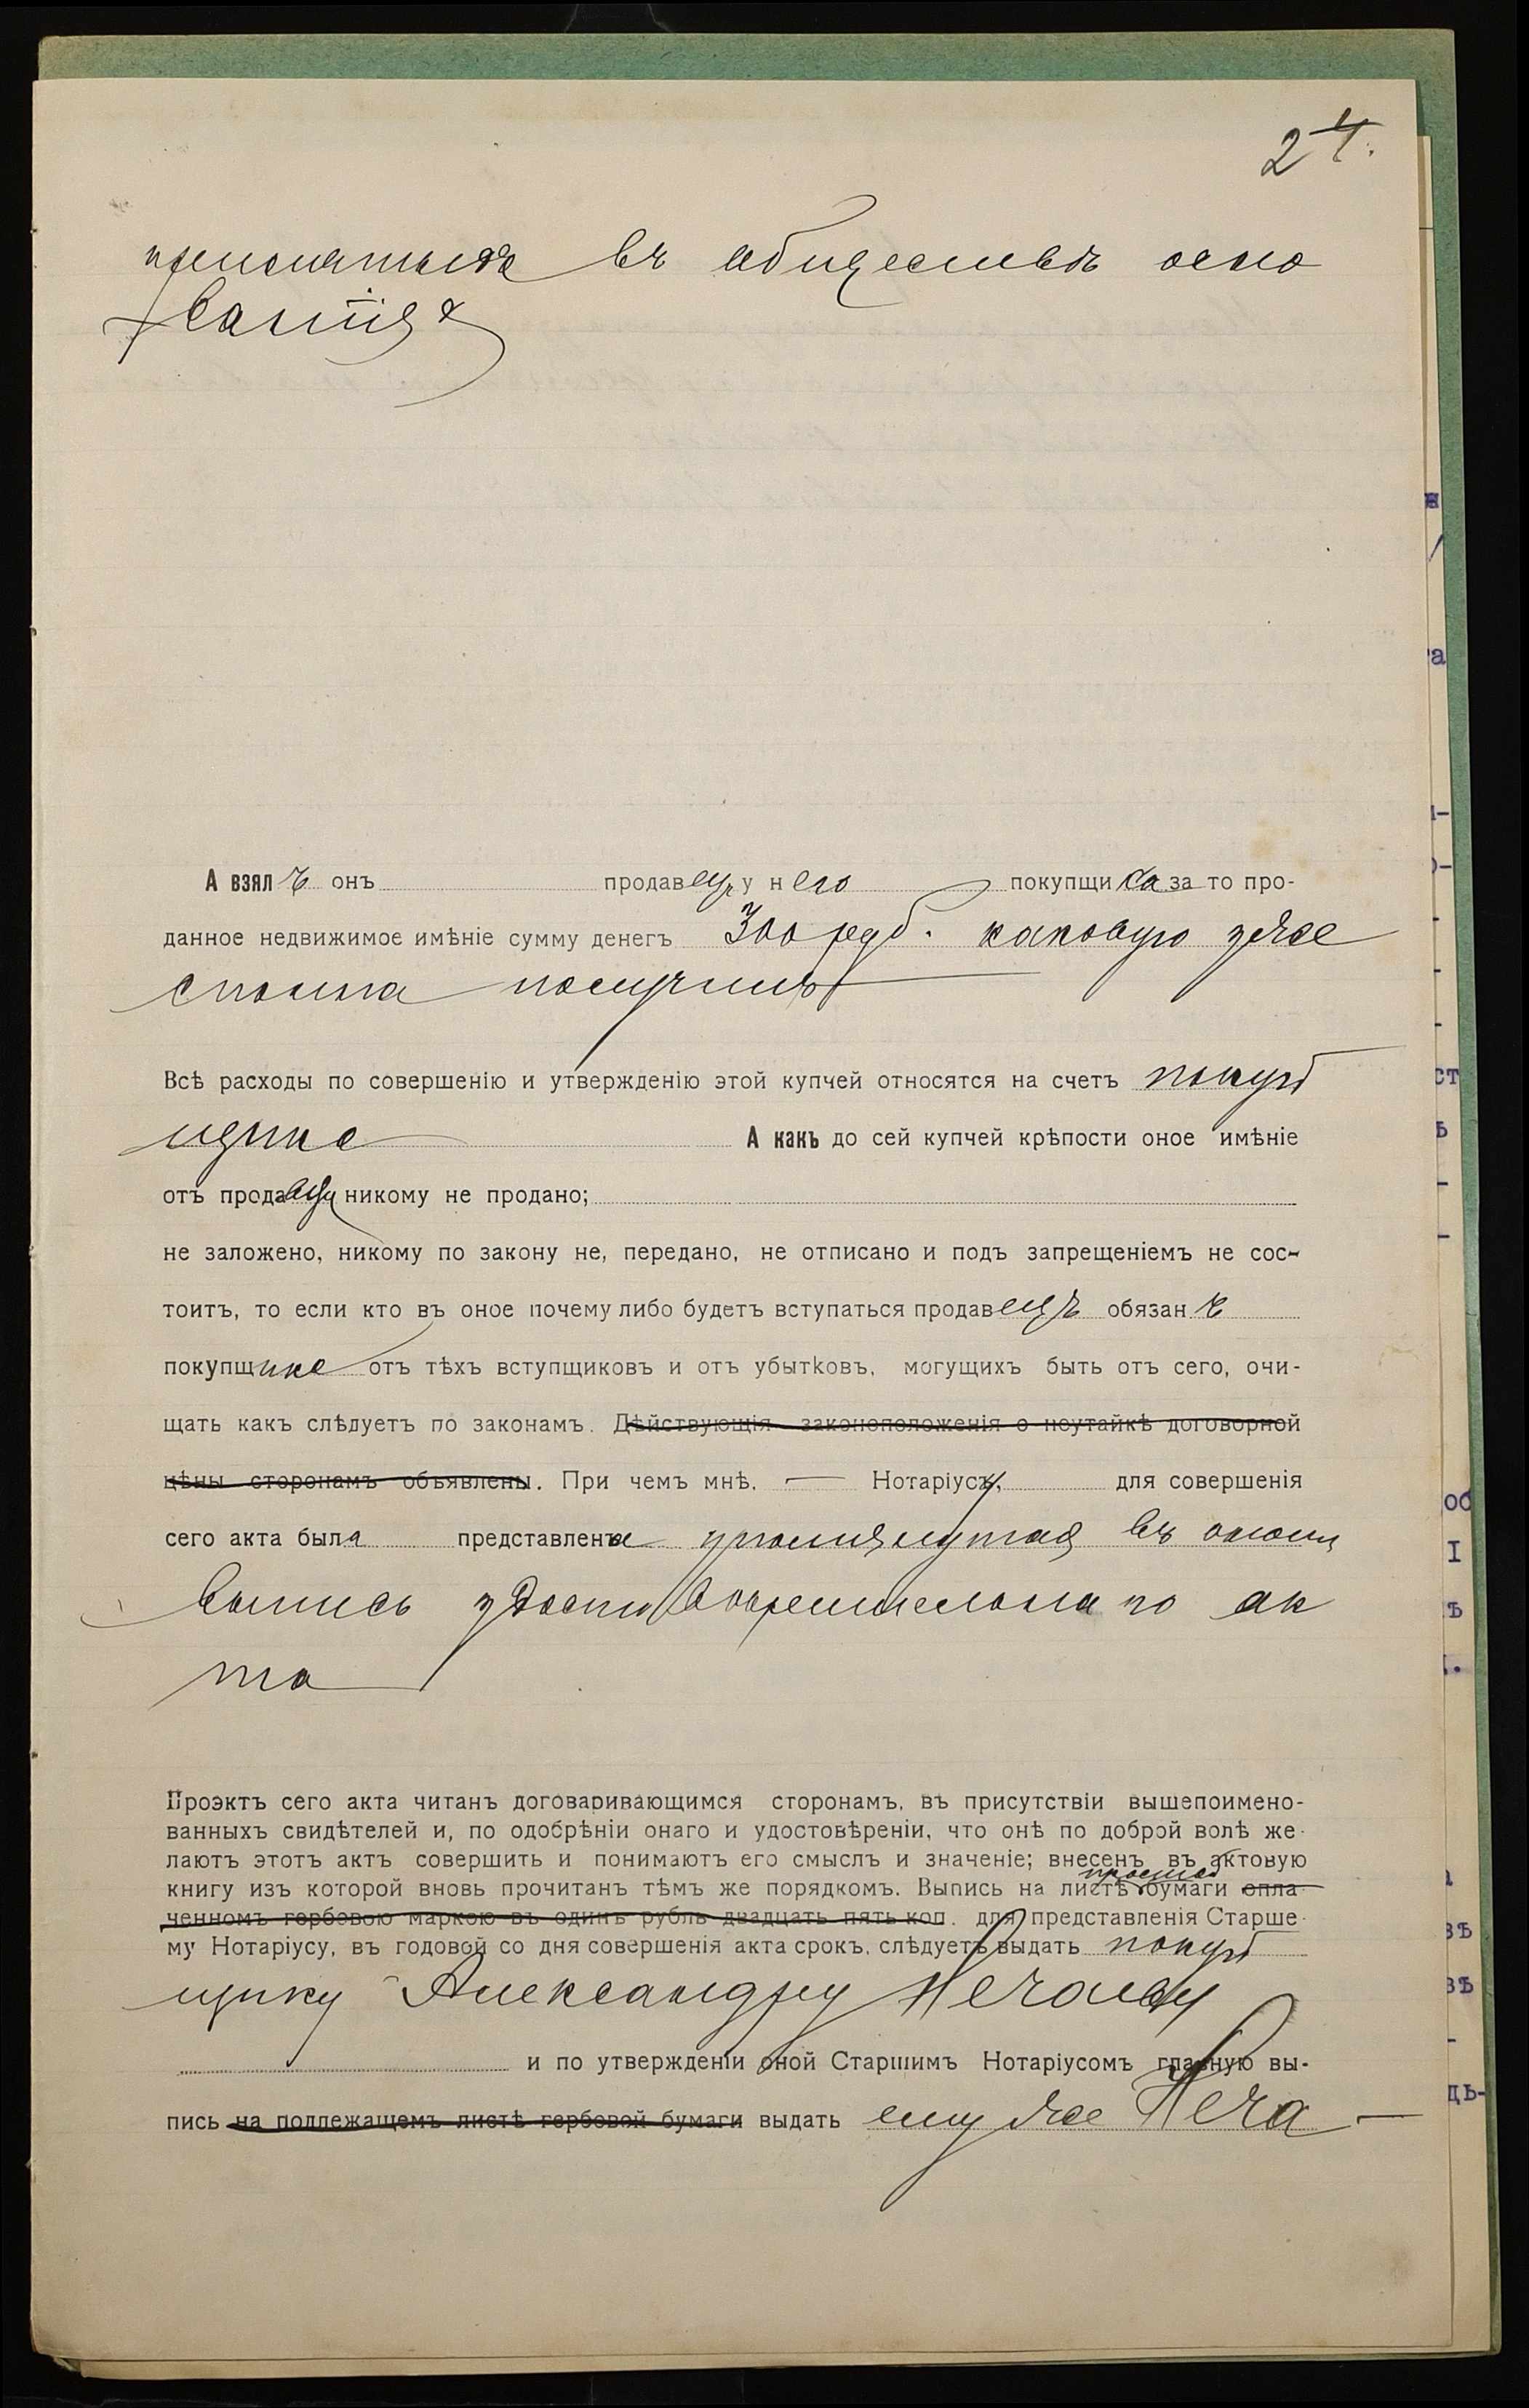 24.
принятыхъ въ обществѣ осно
ваніяхъ
А взялъ онъ продавецъ у него покупщика за то про-
данное недвижимое имѣніе сумму денегъ 300 руб. каковую уже
сполна получилъ
Всѣ расходы по совершенію и утвержденію этой купчей относятся на счетъ покуп
щика А какъ до сей купчей крѣпости оное имѣніе
отъ продавца никому не продано;
не заложено, никому по закону не, передано, не отписано и подъ запрещеніемъ не сос-
тоитъ, то если кто въ оное почему либо будетъ вступаться продавецъ обязанъ
покупщика отъ тѣхъ вступщиковъ и отъ убытковъ, могущихъ быть отъ сего, очи-
щать какъ слѣдуетъ по законамъ. Дѣйствующія законоположенія о неутайкѣ договорной
цѣны сторонамъ объявлены. При чемъ мнѣ, — Нотаріусу, для совершенія
сего акта была представлена упомянутая въ ономъ
выпись удостовѣрительнаго ак
та
Проэктъ сего акта читанъ договаривающимся сторонамъ, въ присутствіи вышепоимено-
ванныхъ свидѣтелей и, по одобрѣніи онаго и удостовѣреніи, что онѣ по доброй волѣ же-
лаютъ этотъ актъ совершить и понимаютъ его смыслъ и значеніе; внесенъ въ актовую
книгу изъ которой вновь прочитанъ тѣмъ же порядкомъ. Выпись на листѣ простой бумаги опла-
ченномъ гербовою маркою въ одинъ рубль двадцать пять коп. для представленія Старше-
му Нотаріусу, въ годовой со дня совершенія акта срокъ, слѣдуетъ выдать покуп
щику Александру Нечаеву
и по утвержденіи оной Старшимъ Нотаріусомъ главную вы-
пись на подлежащемъ листѣ гербовой бумаги выдать ему же Неча-